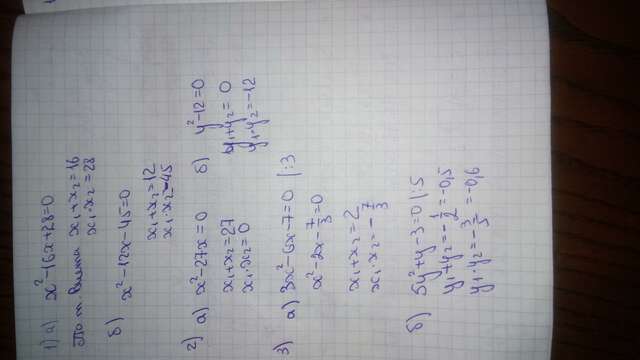 1) а) x²-16x+28=0
По т. Виета x₁+x₂=16
x₁·x₂=28
б) x²-12x-45=0
x₁+x₂=12
x₁·x₂=-45
2) а) x²-27x=0
x₁+x₂=27
x₁·x₂=0
б) y²-12=0
y₁+y₂=0
y₁·y₂=-12
3) а) 3x²-6x-7=0 |:3
x²-2x-7/3=0
x₁+x₂=2
x₁·x₂=-7/3
б) 5y²+y-3=0 |:5
y₁+y₂=-1/2=-0,5
y₁·y₂=-3/5=-0,6